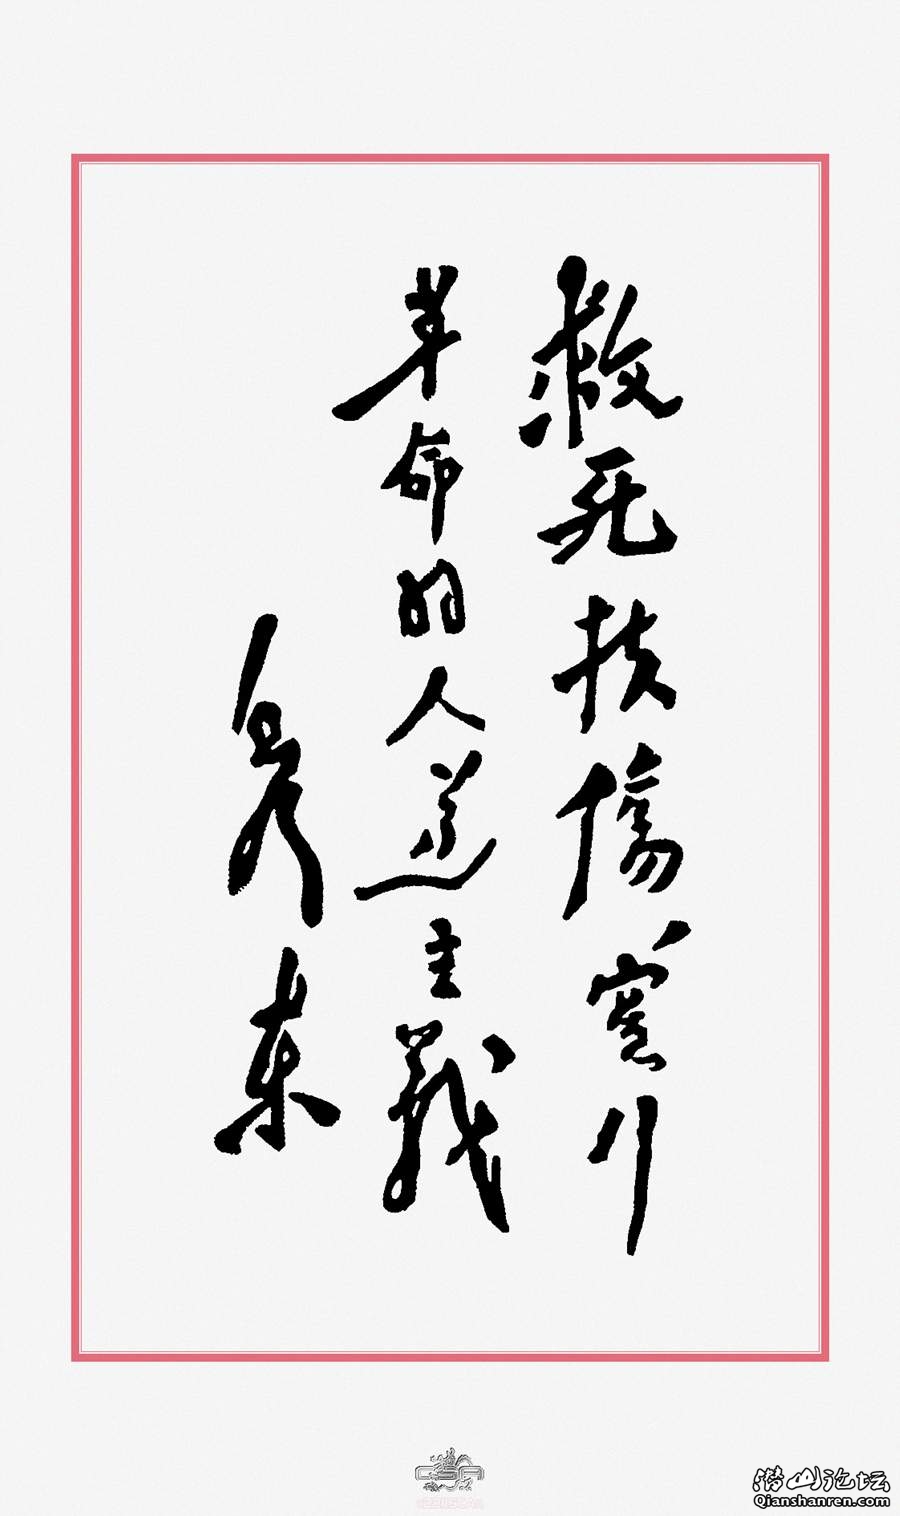 救死扶傷實行
革命的人道主義
毛澤東
CSA
潜山论坛
Qianshanren.com